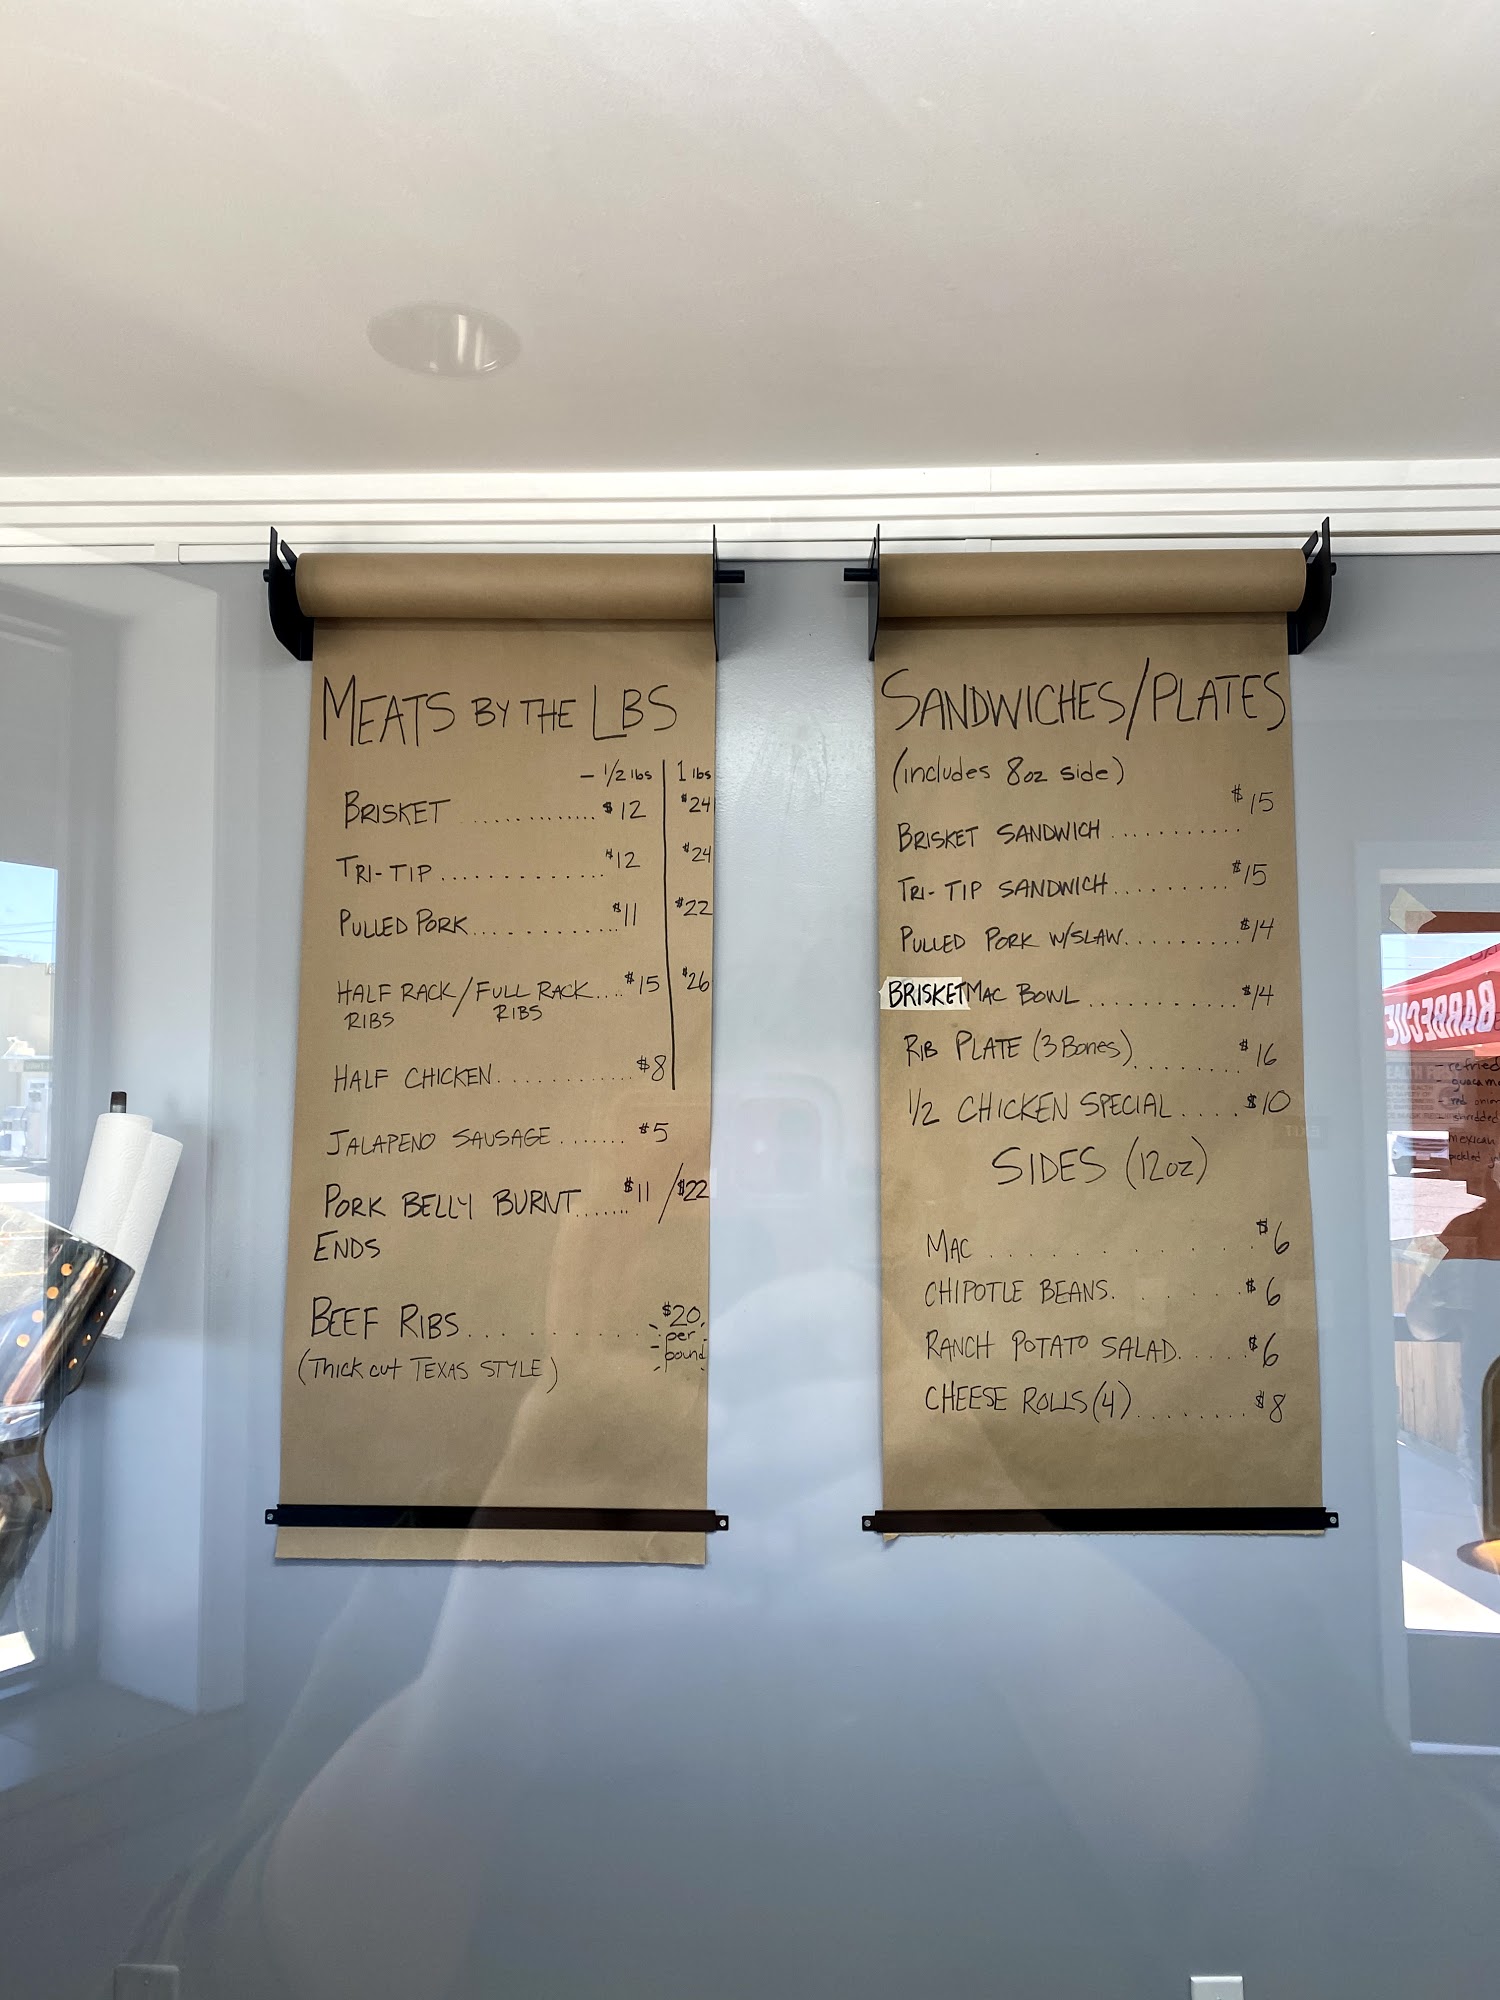 MEATS BY THE LBS
- 1/2 lbs | 1 lbs
BRISKET ............. $12 $24
TRI-TIP ............. $12 $24
PULLED PORK ............ $11 $22
HALF RACK/FULL RACK.... $15 $26
RIBS RIBS
HALF CHICKEN ........... $8
JALAPENO SAUSAGE ....... $5
PORK BELLY BURNT ....... $11/$22
ENDS
BEEF RIBS ........... $20
per
pound
(Thick cut TEXAS STYLE)
SANDWICHES/PLATES
(includes 8oz side)
BRISKET SANDWICH ........... $15
TRI-TIP SANDWICH ......... $15
PULLED PORK W/SLAW ......... $14
BRISKET MAC BOWL .......... $14
RIB PLATE (3 Bones) ........ $16
1/2 CHICKEN SPECIAL .... $10
SIDES (12oz)
MAC ............ $6
CHIPOTLE BEANS. ...... $6
RANCH POTATO SALAD ..... $6
CHEESE ROLLS (4) ........ $8
BARBECUE
- refried
- red
mexican
pickled